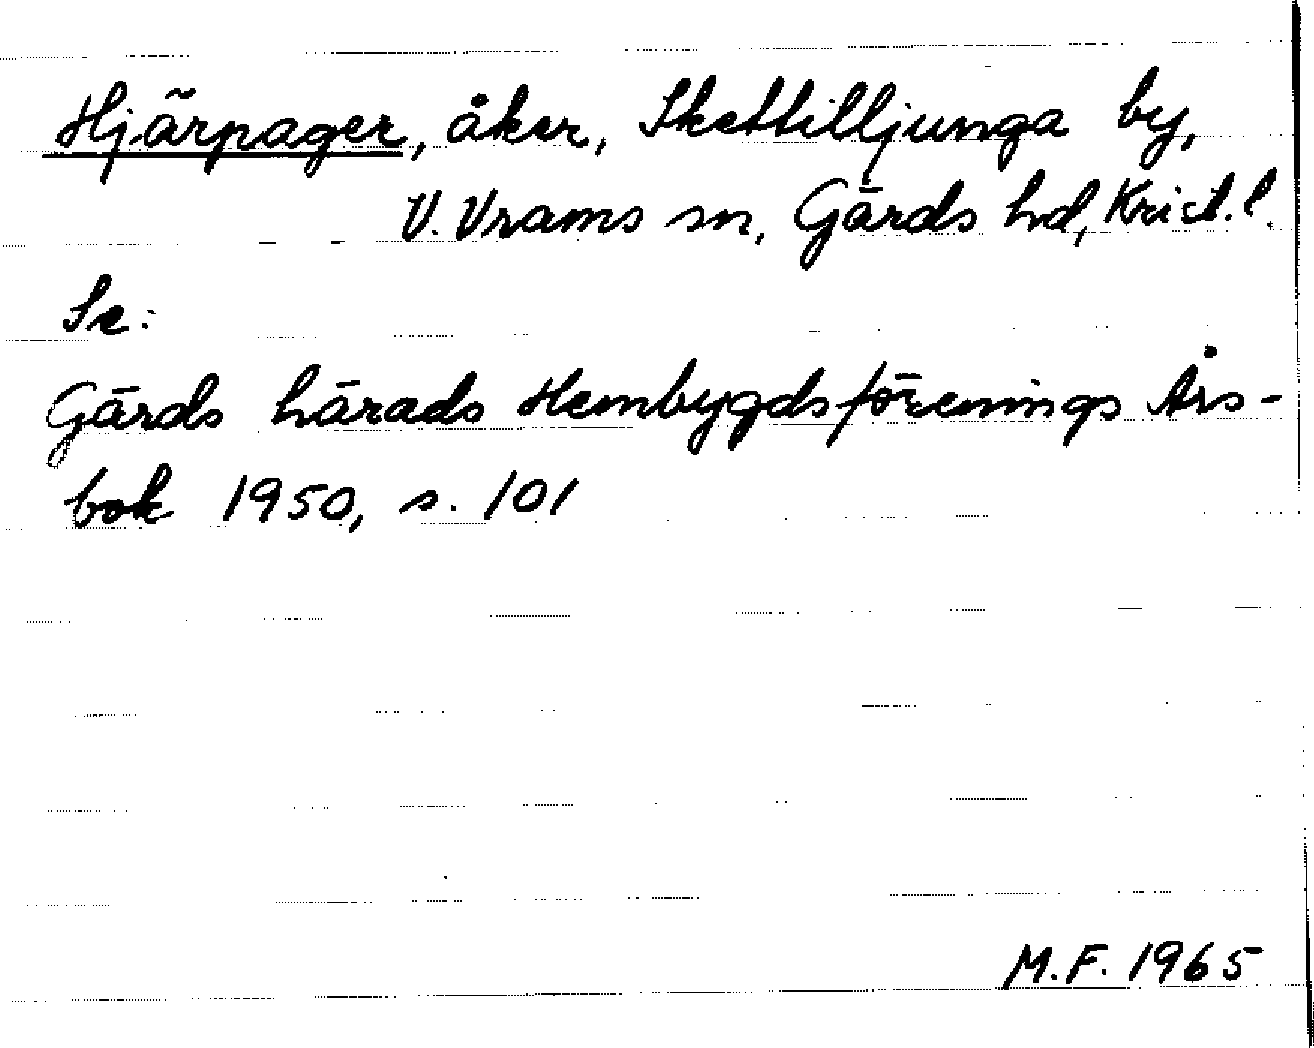 Hjärpager, åker, Skettilljunga by,
V. Vrams sn, Gärds hd, Krist. l.
Se:
Gärds härads Hembygdsförenings Års-
bok 1950, s. 101
M.F. 1965